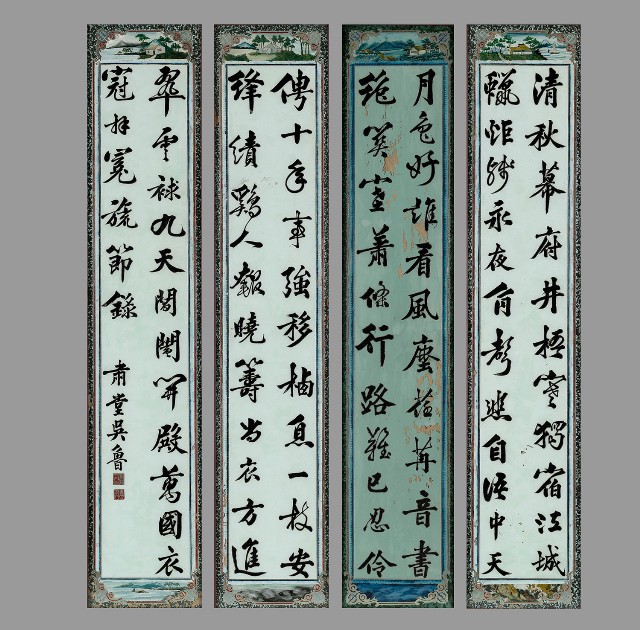 清秋幕府井梧寒獨宿江城
蠟炬殘永夜角聲悲自語中天
月色好誰看風塵荏苒音書
絕關塞蕭條行路難已忍伶
俜十年事強移棲息一枝安
絳績鷄人報曉籌尚衣方進
翠雲裘九天閶闔開殿萬國衣
冠拜冕旒節錄
肅堂吳魯